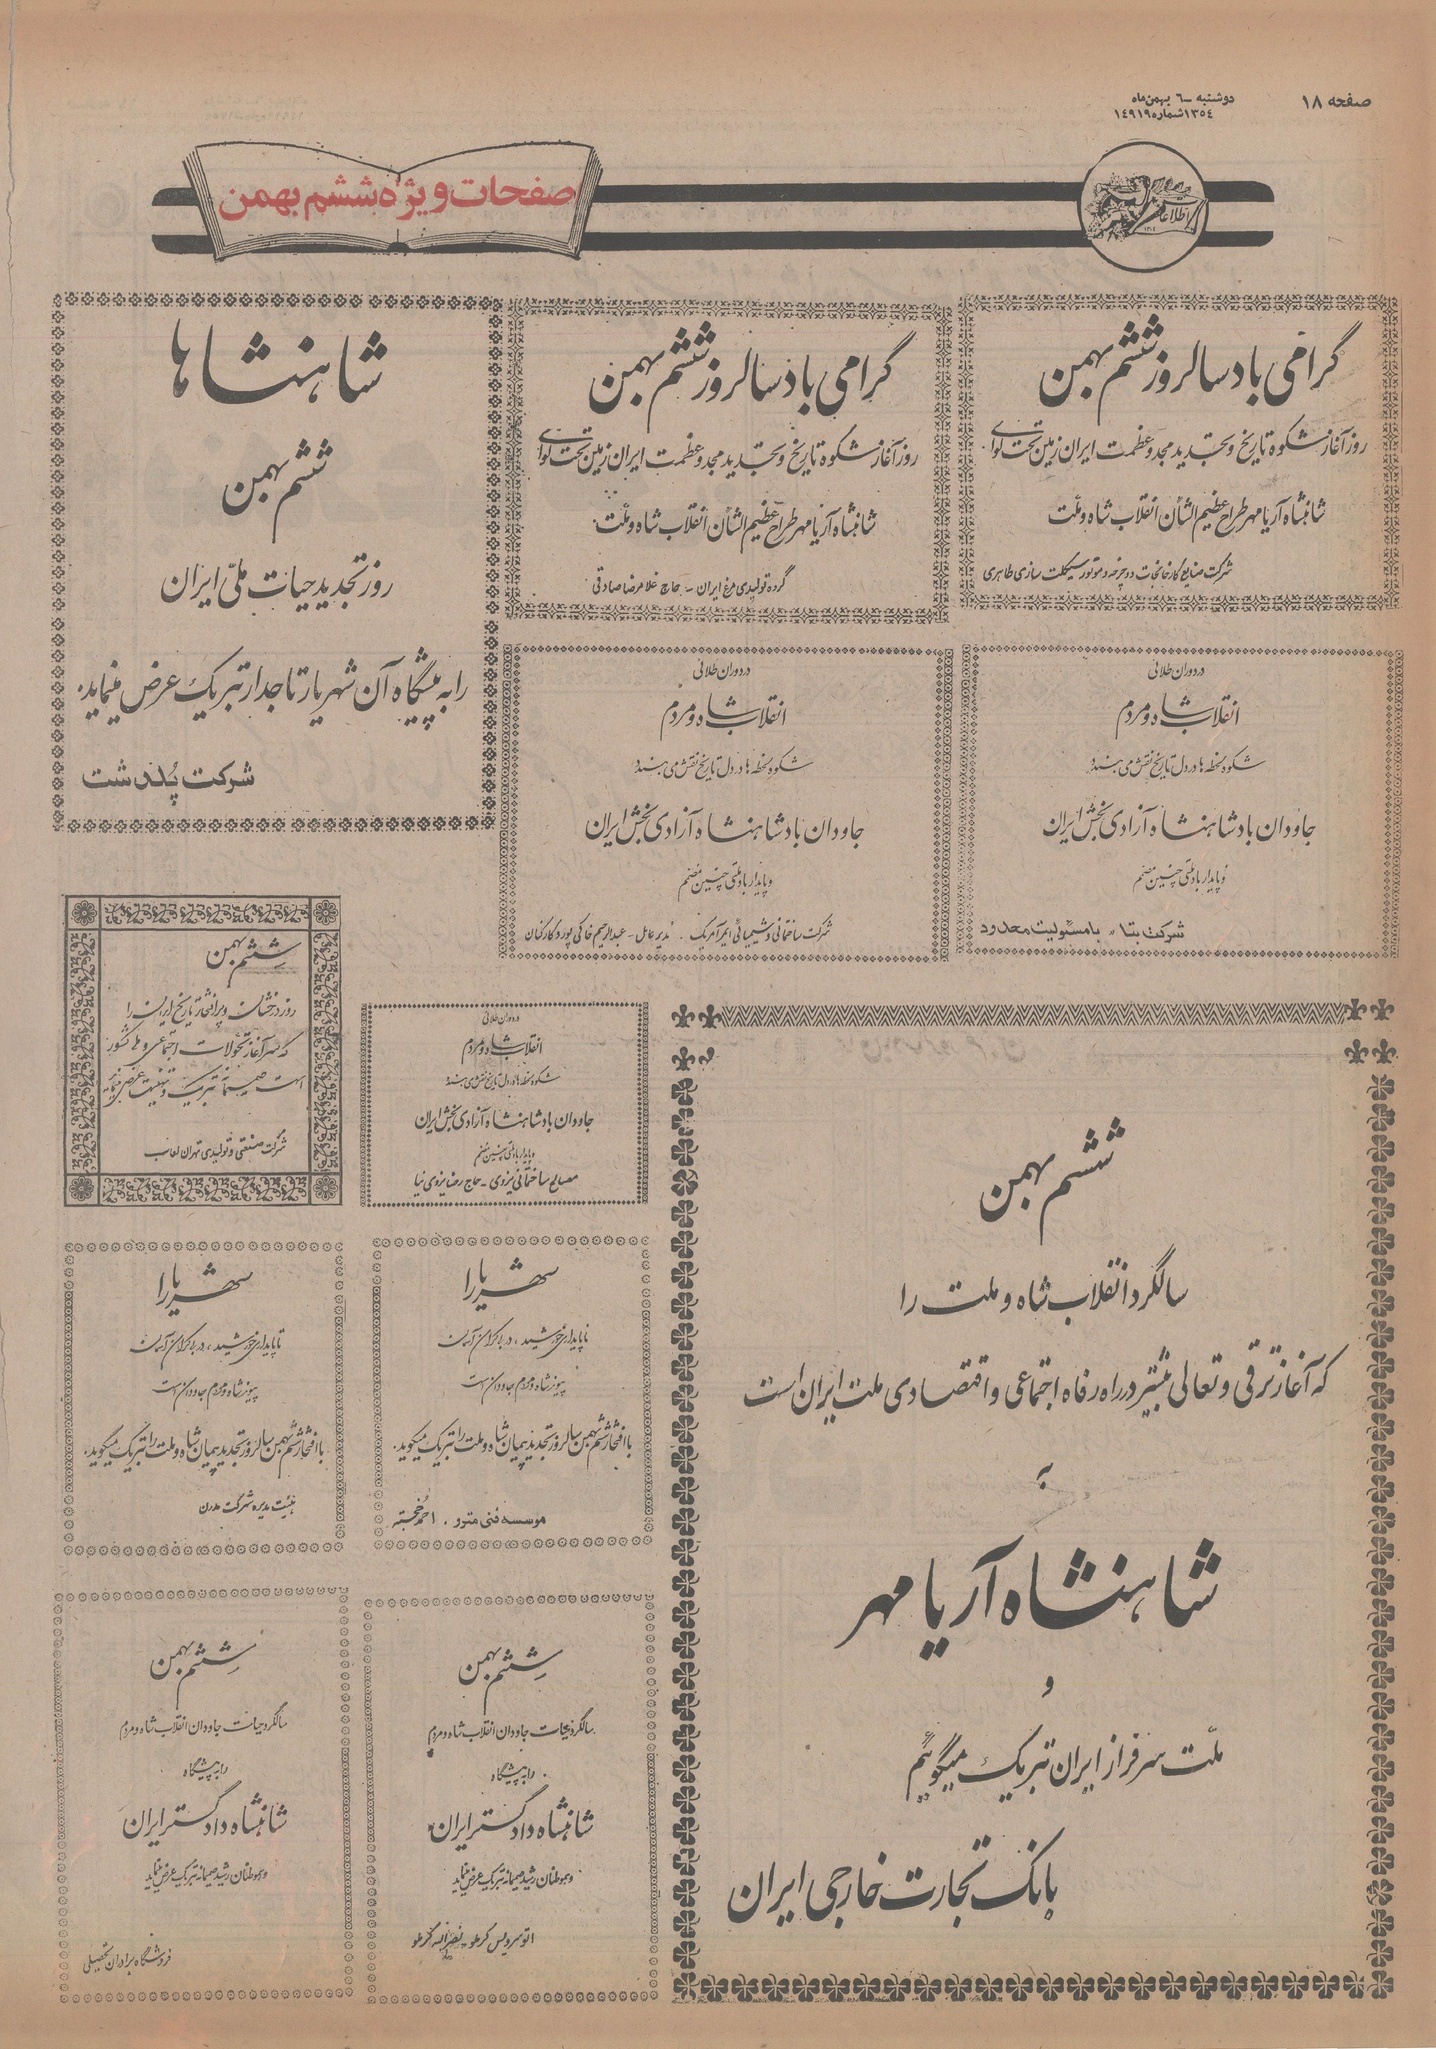 صفحه ۱۸
دوشنبه ـ ۶ بهمن‌ماه
۱۳۵۴ شماره ۱۴۹۱۹
اطلاعات
صفحات ویژه ششم بهمن
گرامی باد سالروز ششم بهمن
روز آغاز شکوه تاریخ و تجدید مجد و عظمت ایران زمین تحت لوای
شاهنشاه آریامهر طراح عظیم الشأن انقلاب شاه و ملت
شرکت صنایع کارخانجات دوچرخه و موتورسیکلت سازی طاهری
گرامی باد سالروز ششم بهمن
روز آغاز شکوه تاریخ و تجدید مجد و عظمت ایران زمین تحت لوای
شاهنشاه آریامهر طراح عظیم الشأن انقلاب شاه و ملت
گروه تولیدی مرغ ایران ـ حاج غلامرضا صادقی
شاهنشاها
ششم بهمن
روز تجدید حیات ملی ایران
را به پیشگاه آن شهریار تاجدار تبریک عرض مینماید.
شرکت پلدشت
در دوران طلائی
انقلاب شاه و مردم
شکوه لحظه ها در دل تاریخ نقش می بندد
جاودان باد شاهنشاه آزادی بخش ایران
و پایدار باد ملتی چنین مصمم
شرکت بتا ، با مسئولیت محدود
در دوران طلائی
انقلاب شاه و مردم
شکوه لحظه ها در دل تاریخ نقش می بندد
جاودان باد شاهنشاه آزادی بخش ایران
و پایدار باد ملتی چنین مصمم
شرکت ساختمانی و شیمیائی ایمر آمریک . مدیر عامل ـ عبدالرحیم خاکی پور و کارکنان
ششم بهمن
روز درخشان و پر افتخار تاریخ ایران را
که سرآغاز تحولات اجتماعی و ملی کشور
است صمیمانه تبریک و تهنیت عرض مینماید
شرکت صنعتی و تولیدی تهران لعاب
در دوران طلائی
انقلاب شاه و مردم
شکوه لحظه ها در دل تاریخ نقش می بندد
جاودان باد شاهنشاه آزادی بخش ایران
و پایدار باد ملتی چنین مصمم
مصالح ساختمانی یزدی ـ حاج رضا یزدی نیا
ششم بهمن
سالگرد انقلاب شاه و ملت را
که آغاز ترقی و تعالی بیشتر در راه رفاه اجتماعی و اقتصادی ملت ایران است
به
شاهنشاه آریامهر
و
ملت سرفراز ایران تبریک میگوئیم
بانک تجارت خارجی ایران
شهریارا
تا پایداری خورشید ، در بیکران آسمان
پیوند شاه و مردم جاودان است
با افتخار ششم بهمن سالروز تجدید پیمان شاه و ملت را تبریک میگوید.
موسسه فنی مترو . احمد خجسته
شهریارا
تا پایداری خورشید ، در بیکران آسمان
پیوند شاه و مردم جاودان است
با افتخار ششم بهمن سالروز تجدید پیمان شاه و ملت را تبریک میگوید.
هیئت مدیره شرکت مدرن
ششم بهمن
سالگرد حیات جاودان انقلاب شاه و مردم
را به پیشگاه
شاهنشاه دادگستر ایران
و هموطنان رشید صمیمانه تبریک عرض مینماید
اتو سرویس کرملو ـ نصراله کرملو
ششم بهمن
سالگرد حیات جاودان انقلاب شاه و مردم
را به پیشگاه
شاهنشاه دادگستر ایران
و هموطنان رشید صمیمانه تبریک عرض مینماید
فروشگاه برادران تحصیلی